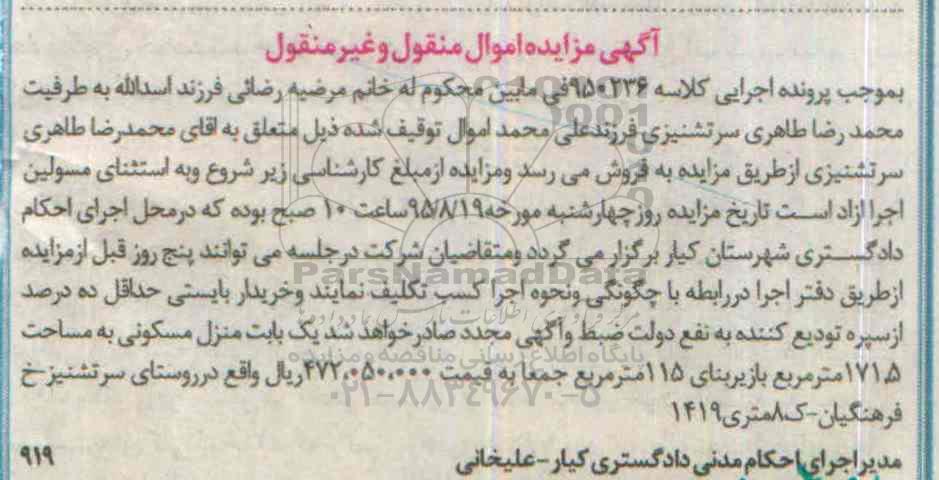 آگهی مزایده اموال منقول و غیر منقول
بموجب پرونده اجرایی کلاسه ۹۵۰۲۳۶فی مابین محکوم له خانم مرضیه رضائی فرزند اسدالله به طرفیت
محمد رضا طاهری سرتشنیزی فرزندعلی محمد اموال توقیف شده ذیل متعلق به اقای محمدرضا طاهری
سرتشنیزی ازطریق مزایده به فروش می رسد ومزایده ازمبلغ کارشناسی زیر شروع وبه استثنای مسولین
اجرا ازاد است تاریخ مزایده روزچهارشنبه مورخه۹۵/۸/۱۹ساعت ۱۰ صبح بوده که درمحل اجرای احکام
دادگستری شهرستان کیار برگزار می گردد ومتقاضیان شرکت درجلسه می توانند پنج روز قبل ازمزایده
ازطریق دفتر اجرا دررابطه با چگونگی ونحوه اجرا کسب تکلیف نمایند وخریدار بایستی حداقل ده درصد
ازسپره تودیع کننده به نفع دولت ضبط وآگهی مجدد صادرخواهد شد یک بابت منزل مسکونی به مساحت
۱۷۱,۵مترمربع بازیربنای ۱۱۵مترمربع جمعا به قیمت ۴۷۲،۰۵۰،۰۰۰ریال واقع درروستای سرتشنیز-خ
فرهنگیان-ک۸متری۱۴۱۹
مدیراجرای احکام مدنی دادگستری کیار-علیخانی
۹۱۹
ParsNamadData
پایگاه اطلاع رسانی مناقصه و مزایده
۰۲۱-۸۸۳۴۹۶۷۰-۵